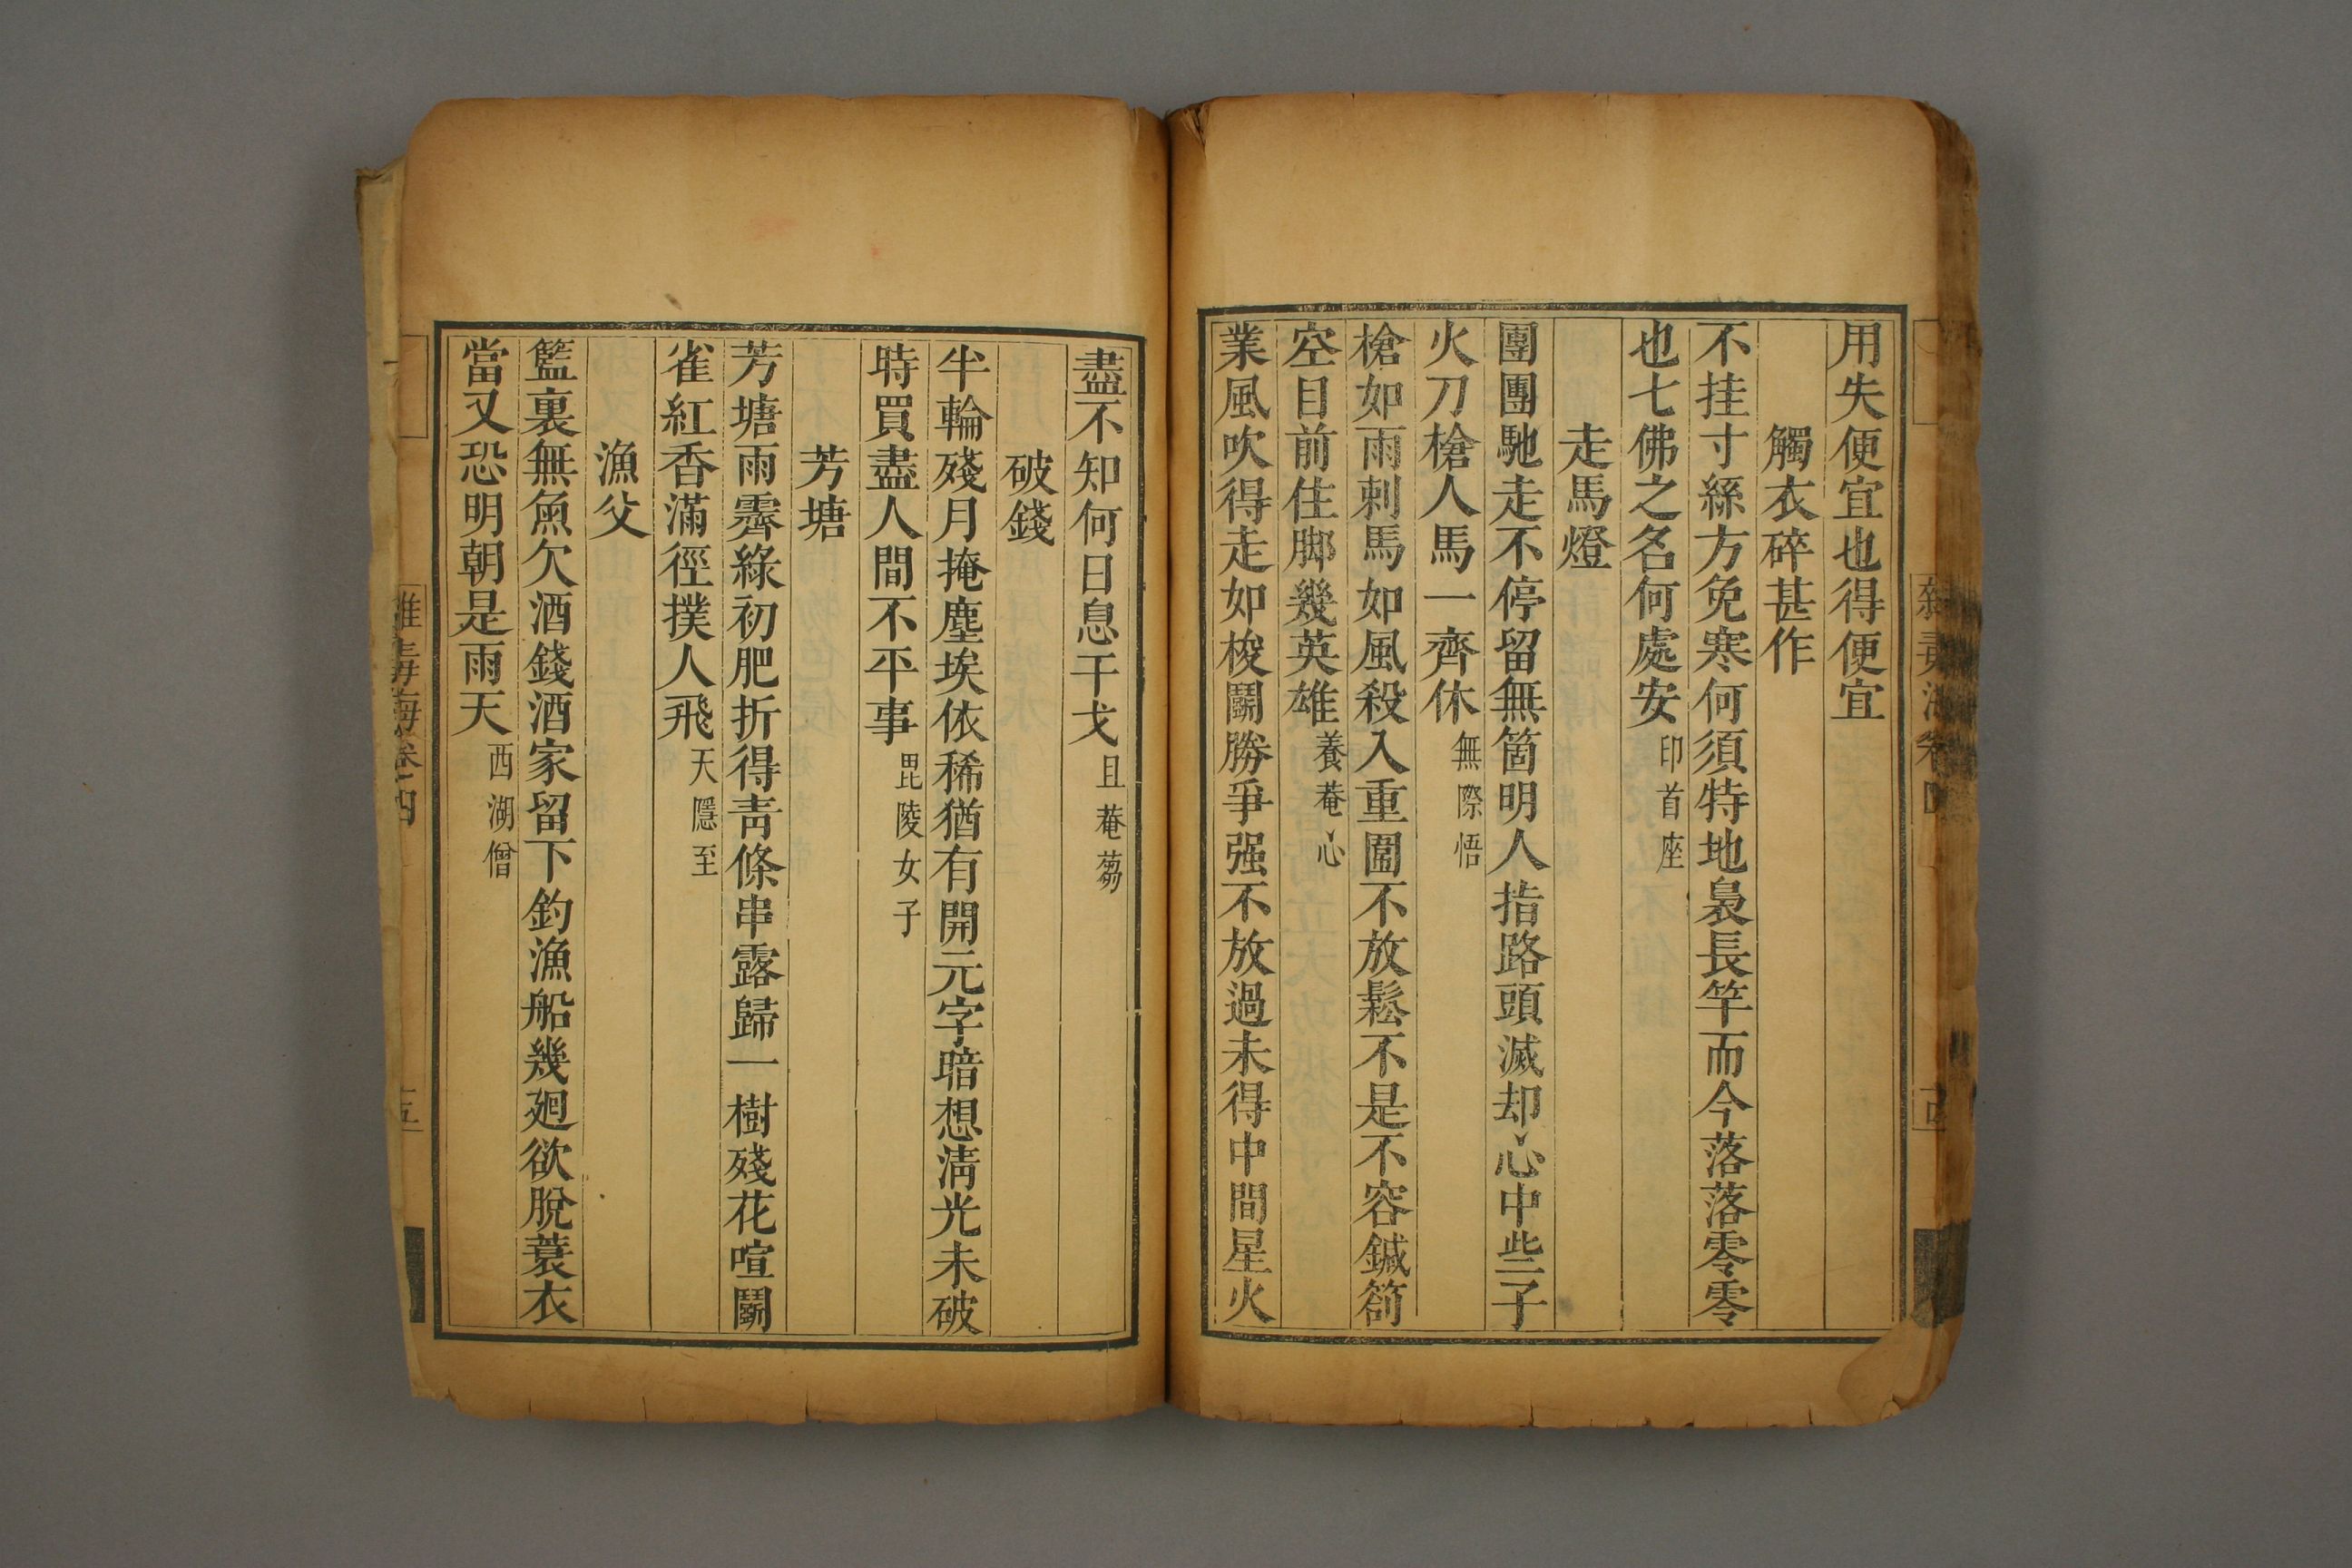 用失便宜也得便宜
觸衣碎甚作
不挂寸絲方免寒何須特地裊長竿而今落落零零
也七佛之名何處安 印首座
走馬燈
團團馳走不停留無箇明人指路頭滅却心中些子
火刀槍人馬一齊休 無際悟
槍如雨刺馬如風殺入重圍不放鬆不是不容鍼箚
空目前住脚幾英雄 養菴心
業風吹得走如梭鬭勝爭强不放過未得中間星火
盡不知何日息干戈 且菴芴
破錢
半輪殘月掩塵埃依稀猶有開元字暗想清光未破
時買盡人間不平事 毘陵女子
芳塘
芳塘雨霽綠初肥折得青條串露歸一樹殘花喧鬭
雀紅香滿徑撲人飛 天隱至
漁父
籃裏無魚欠酒錢酒家留下釣漁船幾廻欲脫蓑衣
當又恐明朝是雨天 西湖僧
雜毒海卷四
五